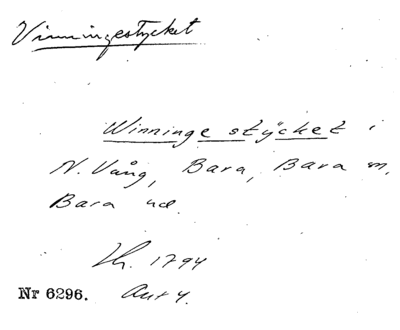 Vinningestycket
Winninge stÿcket i
N. Vång, Bara, Bara m,
Bara hd.
Lh. 1794
Nr 6296. Akt 4.